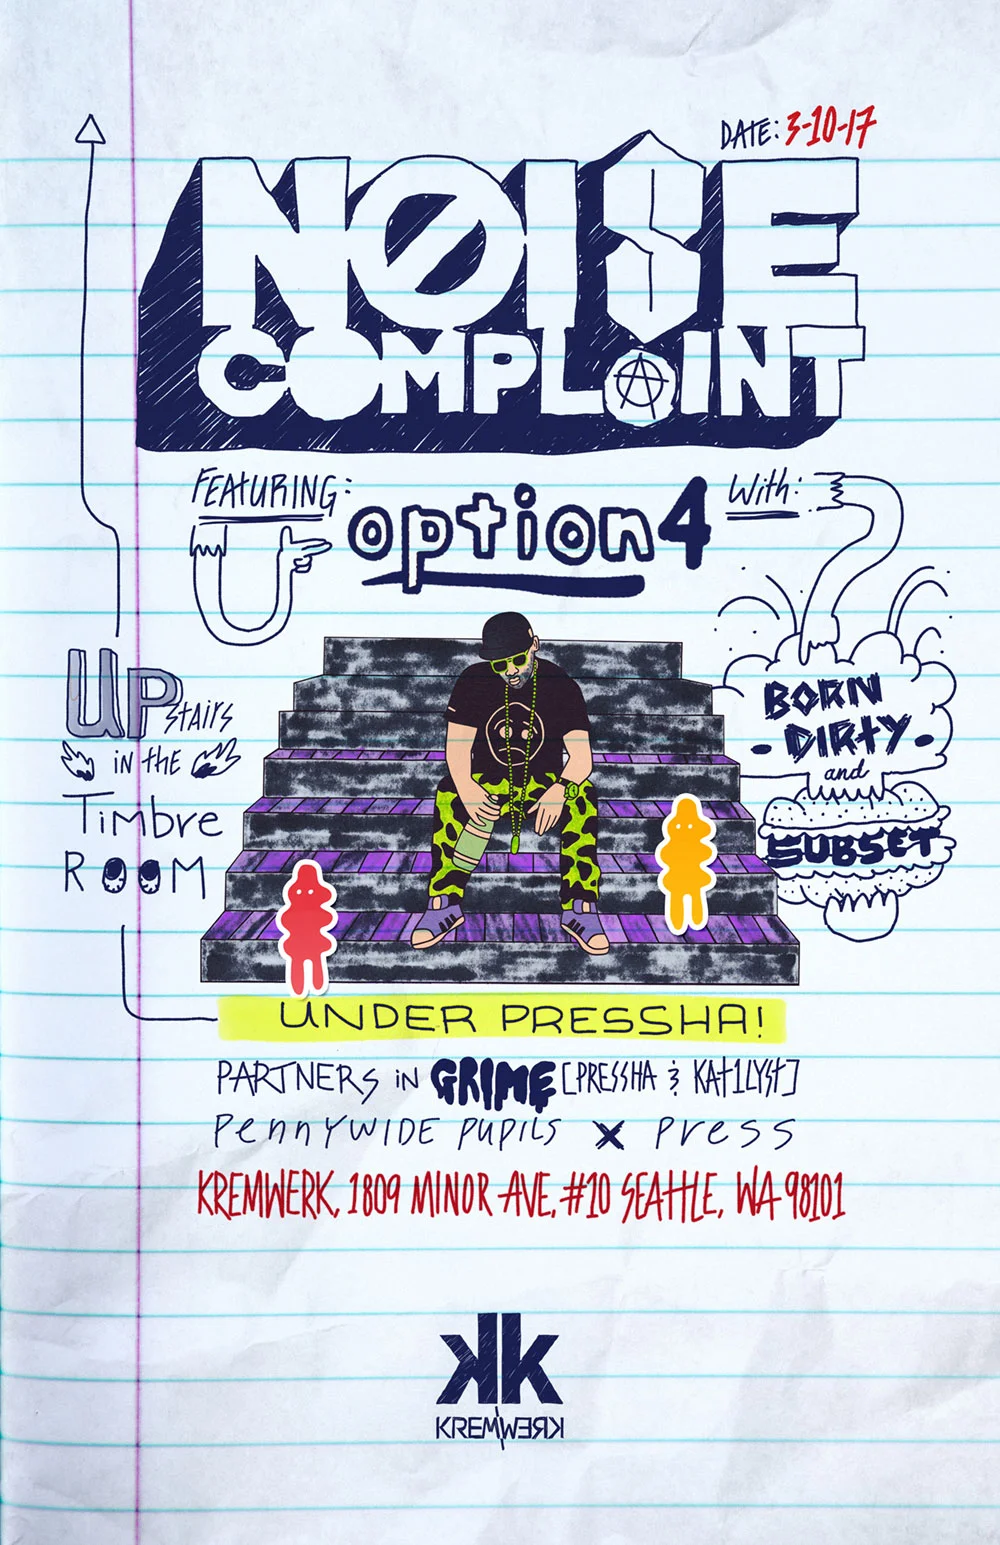 DATE: 3-10-17
NOISE
COMPLAINT
FEATURING:
option4
With:
BORN
DIRTY
and
SUBSET
UPstairs
in the
Timbre
ROOM
UNDER PRESSHA!
PARTNERS iN GRIME [PRESSHA & KAT1LYST]
PennyWIDE PUPiLS X Press
KREMWERK, 1809 MINOR AVE, #10 SEATTLE, WA 98101
kk
KREMWERK